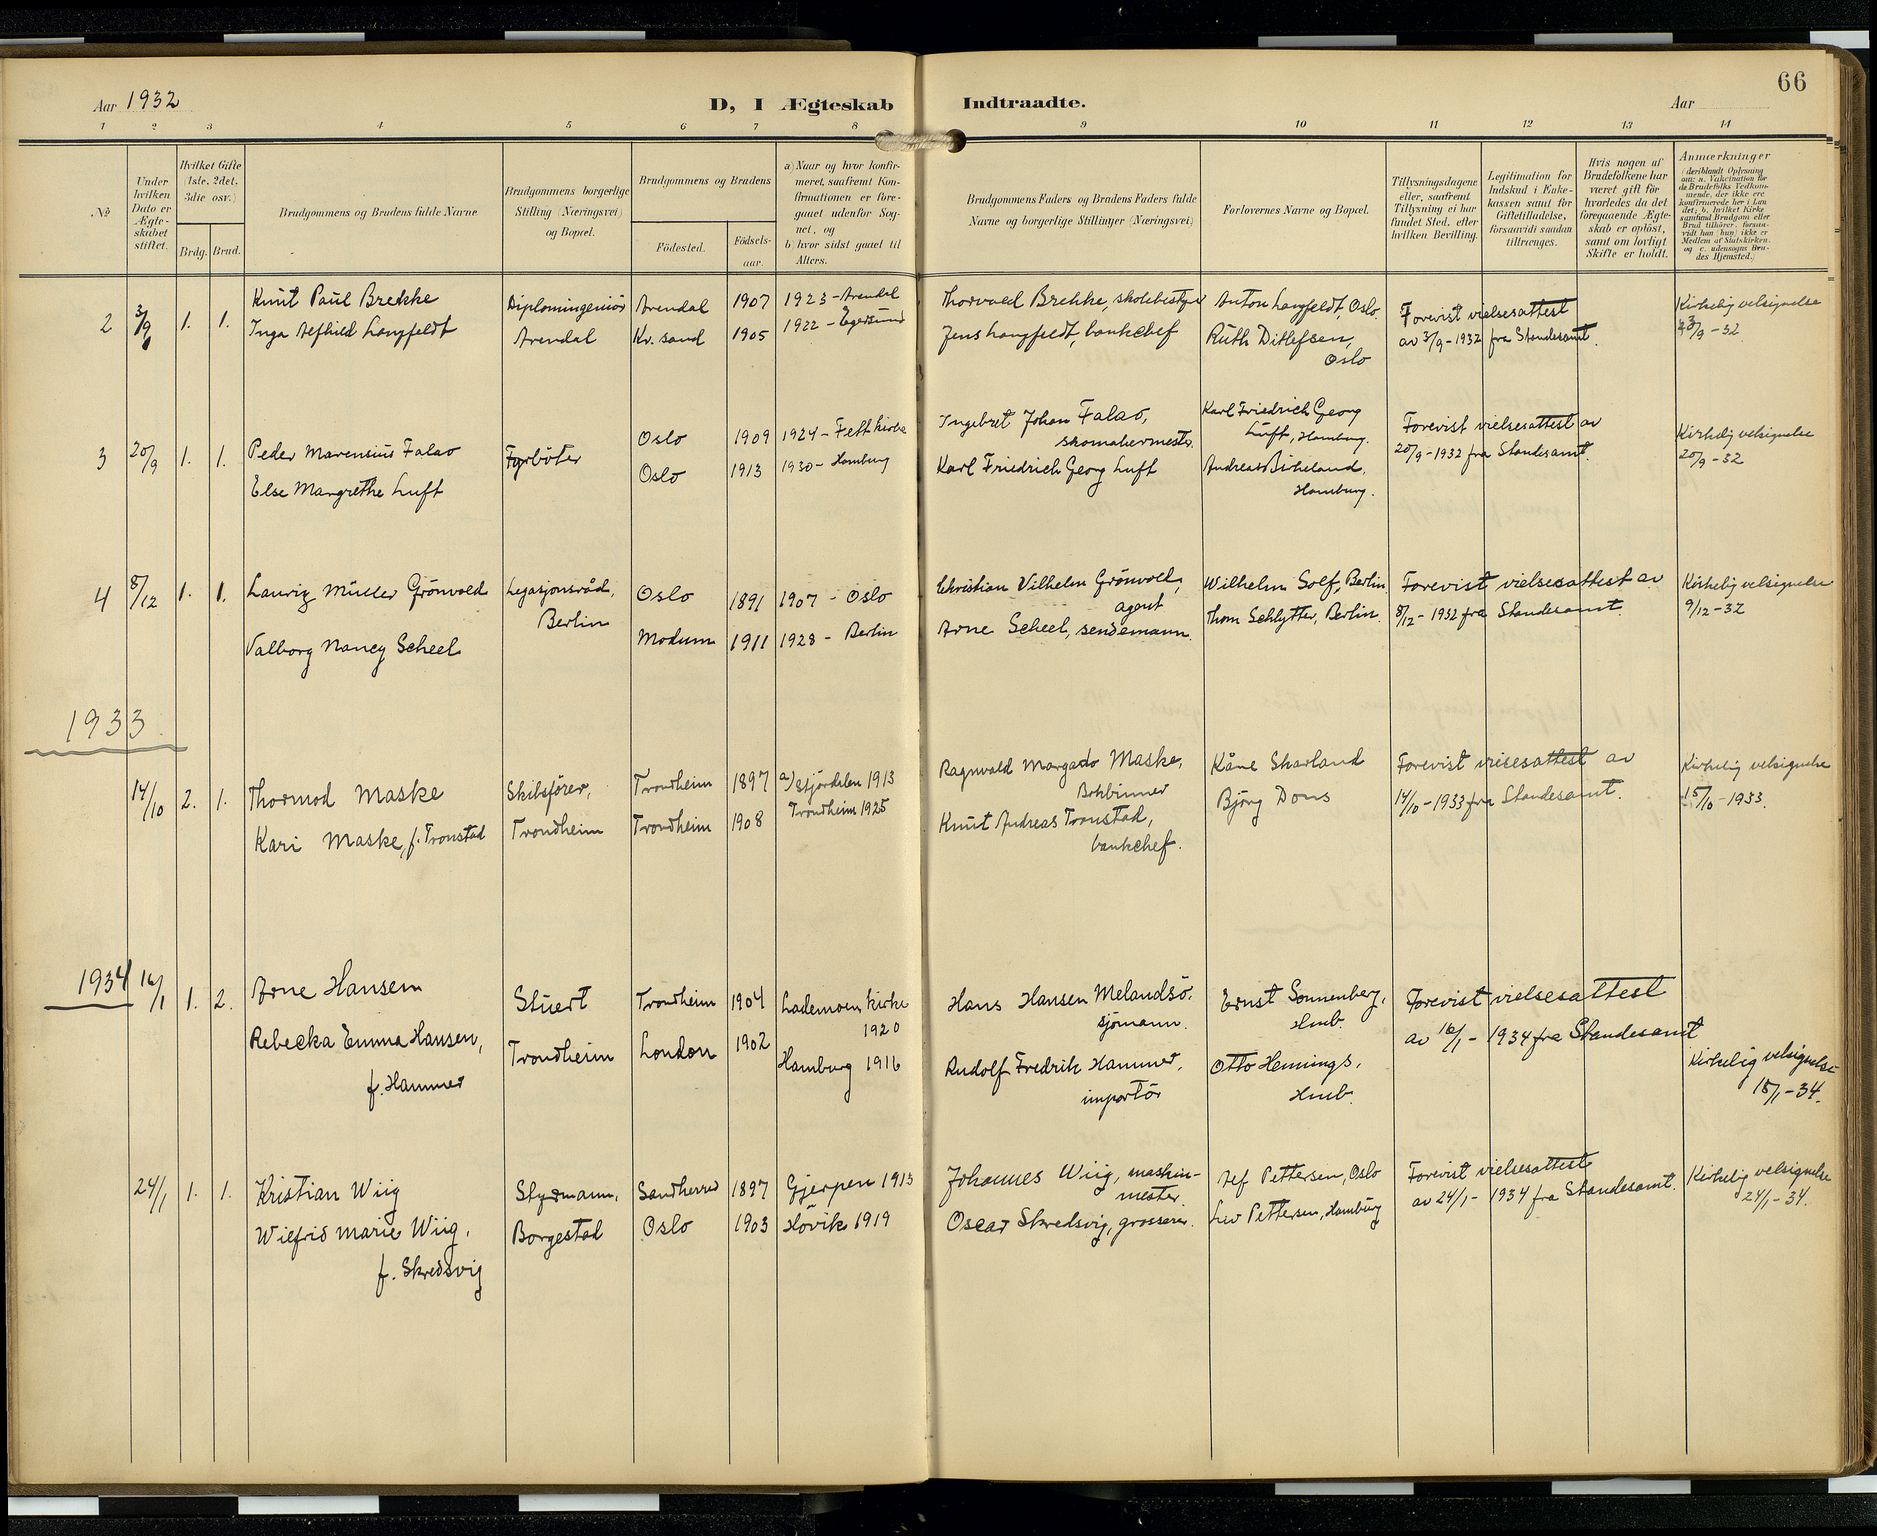 Aar 1932
D, I Ægteskab Indtraadte.
Aar
66
1 2 3 4 5 6 7 8 9 10 11 12 13 14
No
Under hvilken Dato er Ægteskabet stiftet.
Hvilket Gifte (1ste. 2det. 3die osv.)
Brdg. Brud.
Brudgommens og Brudens fulde Navne
Brudgommens borgerlige Stilling (Næringsvei) og Bopæl.
Brudgommens og Brudens
Födested.
Födselsaar.
a) Naar og hvor konfirmeret, saafremt Konfirmationen er foregaaet udenfor Sognet, og
b) hvor sidst gaaet til Alters.
Brudgommens Faders og Brudens Faders fulde Navne og borgerlige Stillinger (Næringsvei)
Forlovernes Navne og Bopæl.
Tillysningsdagene eller, saafremt Tillysning ei har fundet Sted, efter hvilken Bevilling.
Legitimation for Indskud i Enkekassen samt for Giftetilladelse, forsaavidt saadan tiltrænges.
Hvis nogen af Brudefolkene har været gift för hvorledes da det foregaaende Ægteskab er oplöst, samt om lovligt Skifte er holdt.
Anmærkninger (deriblandt Oplysning om: a. Vakcination for de Brudefolks Vedkommende, der ikke ere konfirmerede her i Landet; b. hvilket Kirkesamfund Brudgom eller Brud tilhörer, forsaavidt han (hun) ikke er Medlem af Statskirken, og c. udensogns Brudes Hjemsted.)
2 3/9 1. 1.
Knut Paul Brekke
Inga Alfhild Langfeldt
Diplomingeniör
Arendal
Arendal 1907 1923 - Arendal
Kr. sand 1905 1922 - Egersund
Thorvald Brekke, skolebestyrer
Jens Langfeldt, bankchef
Anton Langfeldt, Oslo.
Ruth Ditlefsen,
Oslo
Forevist vielsesattest
av 3/9 - 1932 fra Standesamt.
Kirkelig velsignelse
3/9 - 32
3 20/9 1. 1.
Peder Marensius Falao
Else Margrethe Luft
Fyrböter
Oslo 1909 1924 - Fett kirke
Oslo 1913 1930 - Hamburg
Ingebret Johan Falao,
skomakermester.
Karl Friedrich Georg Luft
Karl Friedrich Georg
Luft, Hamburg.
Andreas Birkeland,
Hamburg.
Forevist vielsesattest av
20/9 - 1932 fra Standesamt.
Kirkelig velsignelse
20/9 - 32
4 8/12 1. 1.
Lauriz Müller Grönvold
Valborg Nancy Scheel
Legasjonsråd,
Berlin
Oslo 1891 1907 - Oslo
Modum 1911 1928 - Berlin
Christian Vilhelm Grönvold,
agent
Arne Scheel, sendemann.
Wilhelm Solf, Berlin.
Thom Schlytter, Berlin.
Forevist vielsesattest av
8/12 - 1932 fra Standesamt.
Kirkelig velsignelse
9/12 - 32
1933.
14/10 2. 1.
Thormod Maske
Kari Maske, f. Tronstad
Skibsförer,
Trondheim
Trondheim 1897 a) Stjördalen 1913
Trondheim 1908 Trondheim 1925
Ragnvald Margado Maske,
Bokbinner
Knut Andreas Tronstad,
bankchef.
Kåre Skarland
Björg Dons
Forevist vielsesattest av
14/10 - 1933 fra Standesamt.
Kirkelig velsignelse
15/10 - 1933.
1934 16/1 1. 2.
Arne Hansen
Rebecka Emma Hansen,
f. Hammer
Stuert
Trondheim
Trondheim 1904 Lademoen kirke
1920
London 1902 Hamburg 1916
Hans Hansen Melandsö.
sjömann.
Rudolf Fredrik Hammer,
importör
Ernst Sonnenberg,
Hmb.
Otto Hennings,
Hmb.
Forevist vielsesattest
av 16/1 - 1934 fra Standesamt
Kirkelig velsignelse
18/1 - 34.
24/1 1. 1.
Kristian Wiig
Wilfrid Marie Wiig,
f. Skredsvig
Styrmann,
Borgestad
Sandherred 1897 Gjerpen 1913
Oslo 1903 Hövik 1919
Johannes Wiig, maskinmester
Oscar Skredsvig, grosserer.
Alf Pettersen, Oslo
Liv Pettersen, Hamburg
Forevist vielsesattest
av 24/1 - 1934 fra Standesamt.
Kirkelig velsignelse
24/1 - 34.